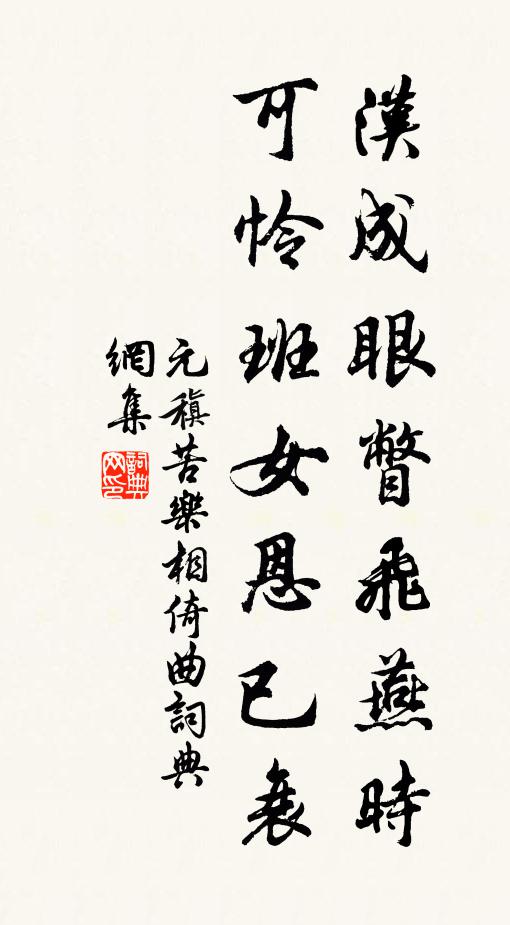 漢成眼瞥飛燕時
可怜班女恩已衰
元稹苦樂相倚曲詞典
網集
詞典網印